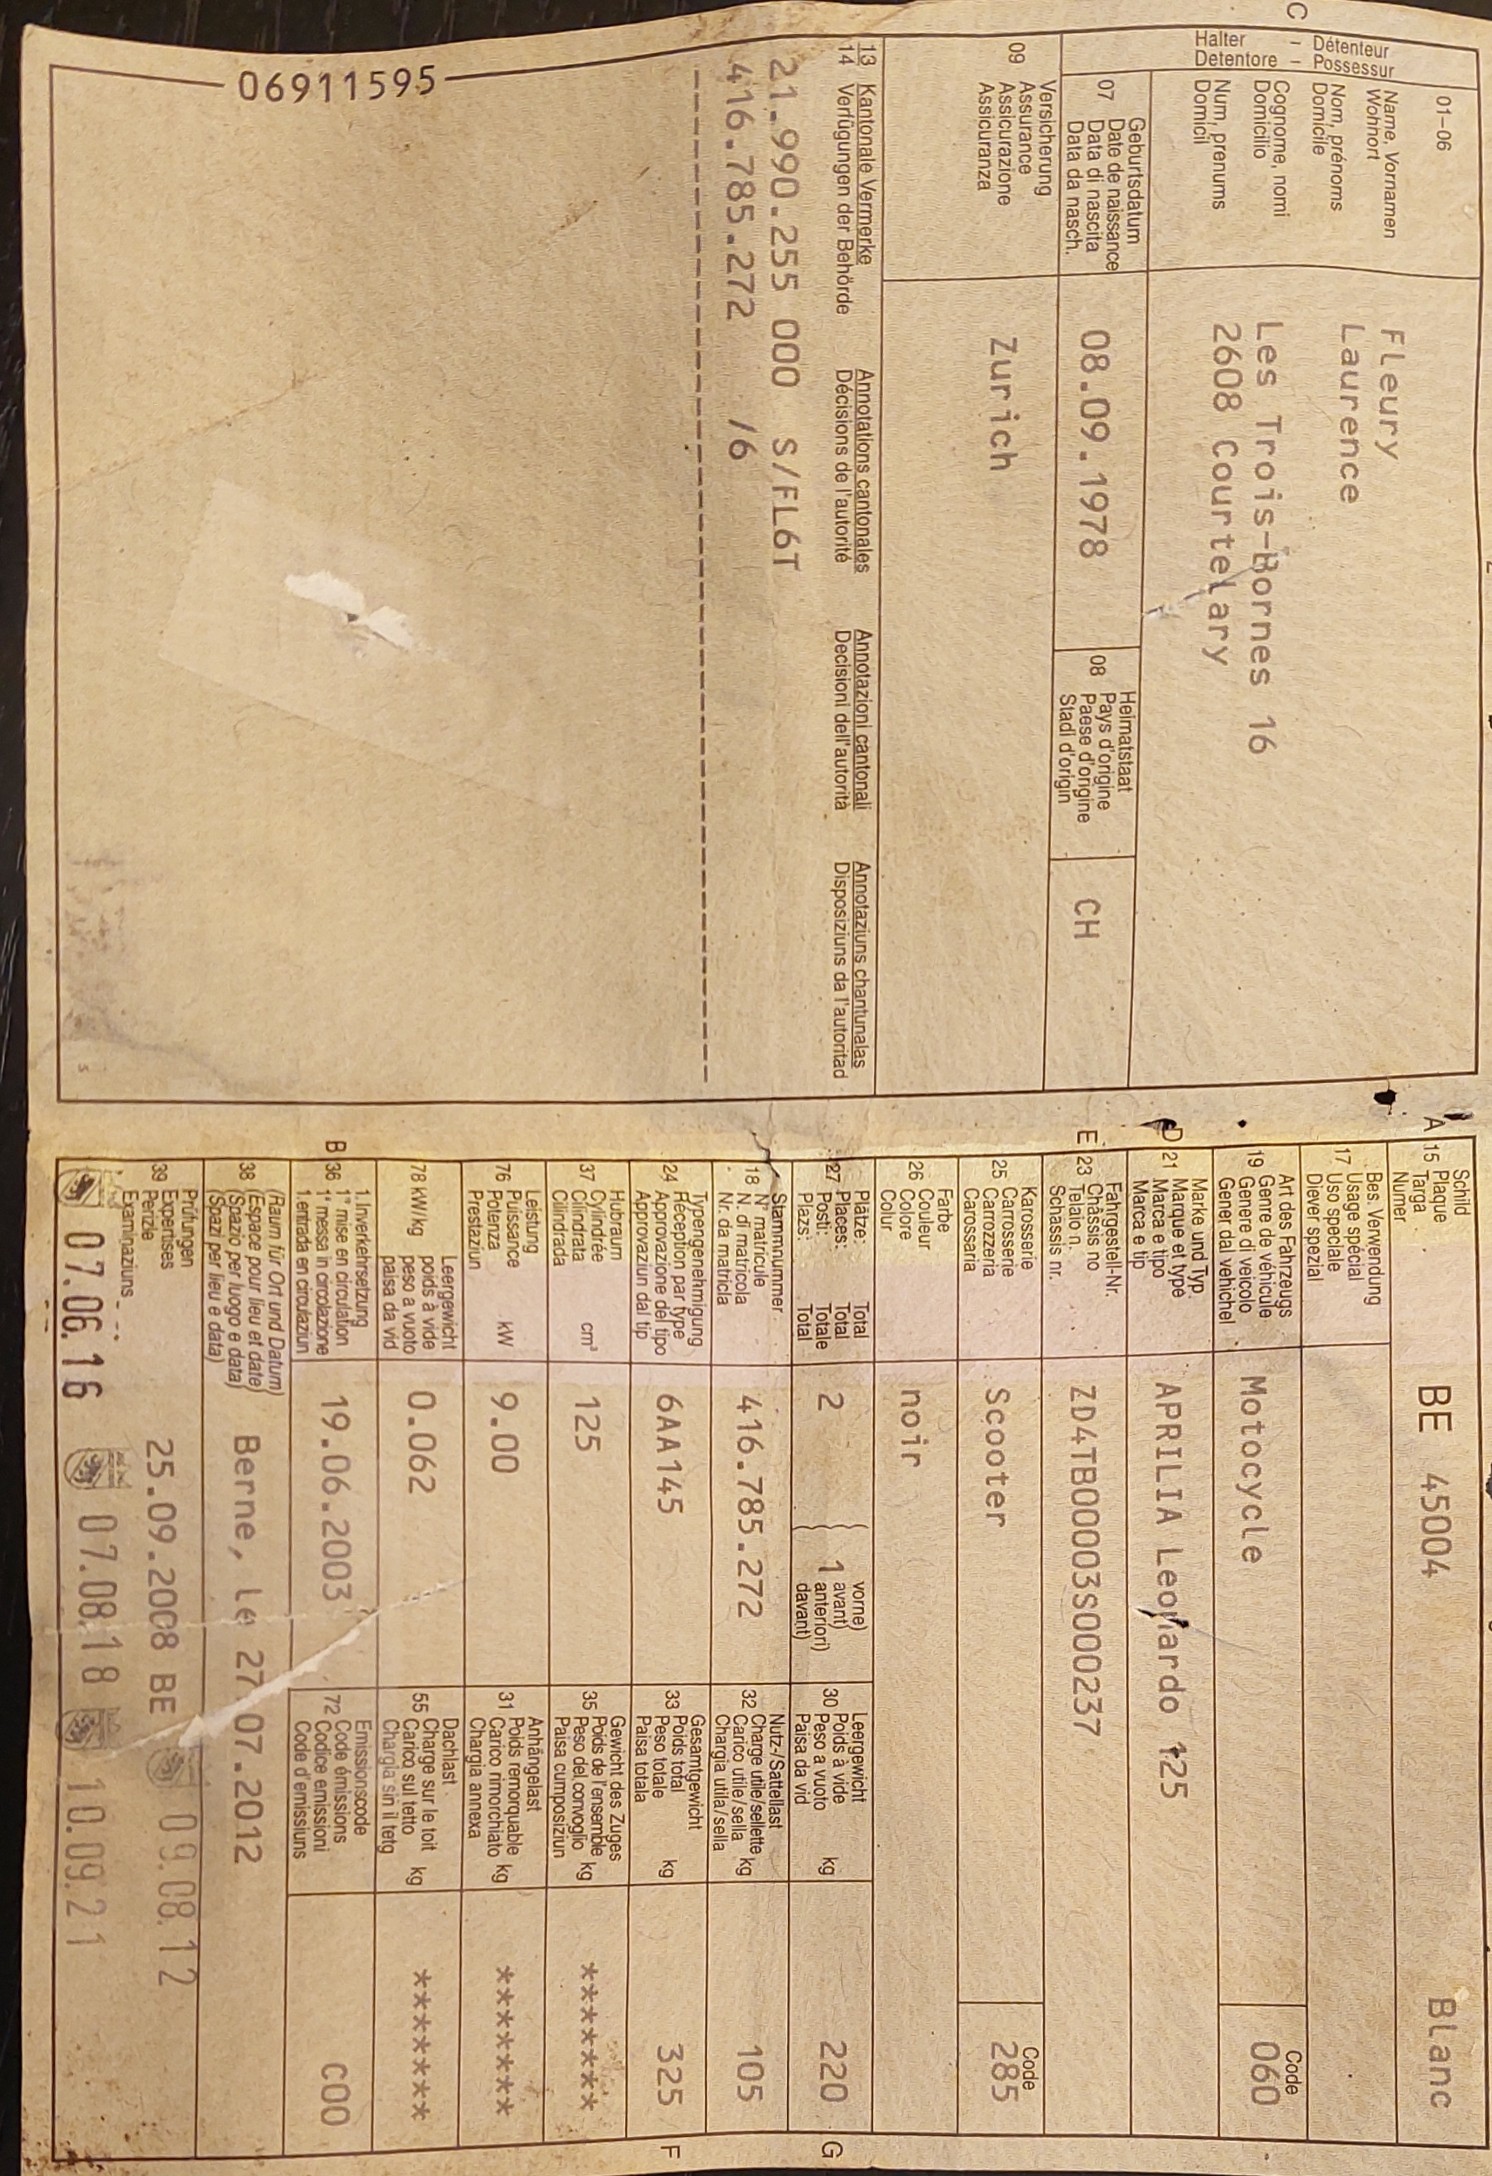 C
Halter – Détenteur
Detentore – Possessur
01–06
Name, Vornamen
Wohnort
Nom, prénoms
Domicile
Cognome, nomi
Domicilio
Num, prenums
Domicil
Fleury
Laurence
Les Trois-Bornes 16
2608 Courtelary
07
Geburtsdatum
Date de naissance
Data di nascita
Data da nasch.
08.09.1978
08
Heimatstaat
Pays d'origine
Paese d'origine
Stadi d'origin
CH
09
Versicherung
Assurance
Assicurazione
Assicuranza
Zurich
13 Kantonale Vermerke Annotations cantonales Annotazioni cantonali Annotaziuns chantunalas
14 Verfügungen der Behörde Décisions de l'autorité Decisioni dell'autorità Disposiziuns da l'autoritad
21.990.255 000 S/FL6T
416.785.272 /6
06911595
5
A 15
Schild
Plaque
Targa
Numer
BE 45004 Blanc
17
Bes. Verwendung
Usage spécial
Uso speciale
Diever spezial
19
Art des Fahrzeugs
Genre de véhicule
Genere di veicolo
Gener dal vehichel
Motocycle
Code
060
D 21
Marke und Typ
Marque et type
Marca e tipo
Marca e tip
APRILIA Leonardo 125
E 23
Fahrgestell-Nr.
Châssis no
Telaio n.
Schassis nr.
ZD4TB00003S000237
25
Karosserie
Carrosserie
Carrozzeria
Carossaria
Scooter
Code
285
26
Farbe
Couleur
Colore
Colur
noir
27
Plätze: Total
Places: Total
Posti: Totale
Plazs: Total
2
1
vorne)
avant)
anteriori)
davant)
30
Leergewicht
Poids à vide
Peso a vuoto kg
Paisa da vid
220
G
18
Stammnummer
N° matricule
N. di matricola
Nr. da matricla
416.785.272
32
Nutz-/Sattellast
Charge utile/sellette
Carico utile/sella kg
Chargia utila/sella
105
24
Typengenehmigung
Réception par type
Approvazione del tipo
Approvaziun dal tip
6AA145
33
Gesamtgewicht
Poids total
Peso totale kg
Paisa totala
325
F
37
Hubraum
Cylindrée
Cilindrata cm³
Cilindrada
125
35
Gewicht des Zuges
Poids de l'ensemble
Peso del convoglio kg
Paisa cumposiziun
*******
76
Leistung
Puissance
Potenza kW
Prestaziun
9.00
31
Anhängelast
Poids remorquable
Carico rimorchiato kg
Chargia annexa
*******
78 kW/kg
Leergewicht
poids à vide
peso a vuoto
paisa da vid
0.062
55
Dachlast
Charge sur le toit
Carico sul tetto kg
Chargia sin il tetg
*******
B 36
1.Inverkehrsetzung
1re mise en circulation
1a messa in circolazione
1.entrada en circulaziun
19.06.2003
72
Emissionscode
Code émissions
Codice emissioni
Code d'emissiuns
C00
38
(Raum für Ort und Datum)
(Espace pour lieu et date)
(Spazio per luogo e data)
(Spazi per lieu e data)
Berne, le 27.07.2012
39
Prüfungen
Expertises
Perizie
Examinaziuns
25.09.2008 BE 09.08.12
07.06.16 07.08.18 10.09.21